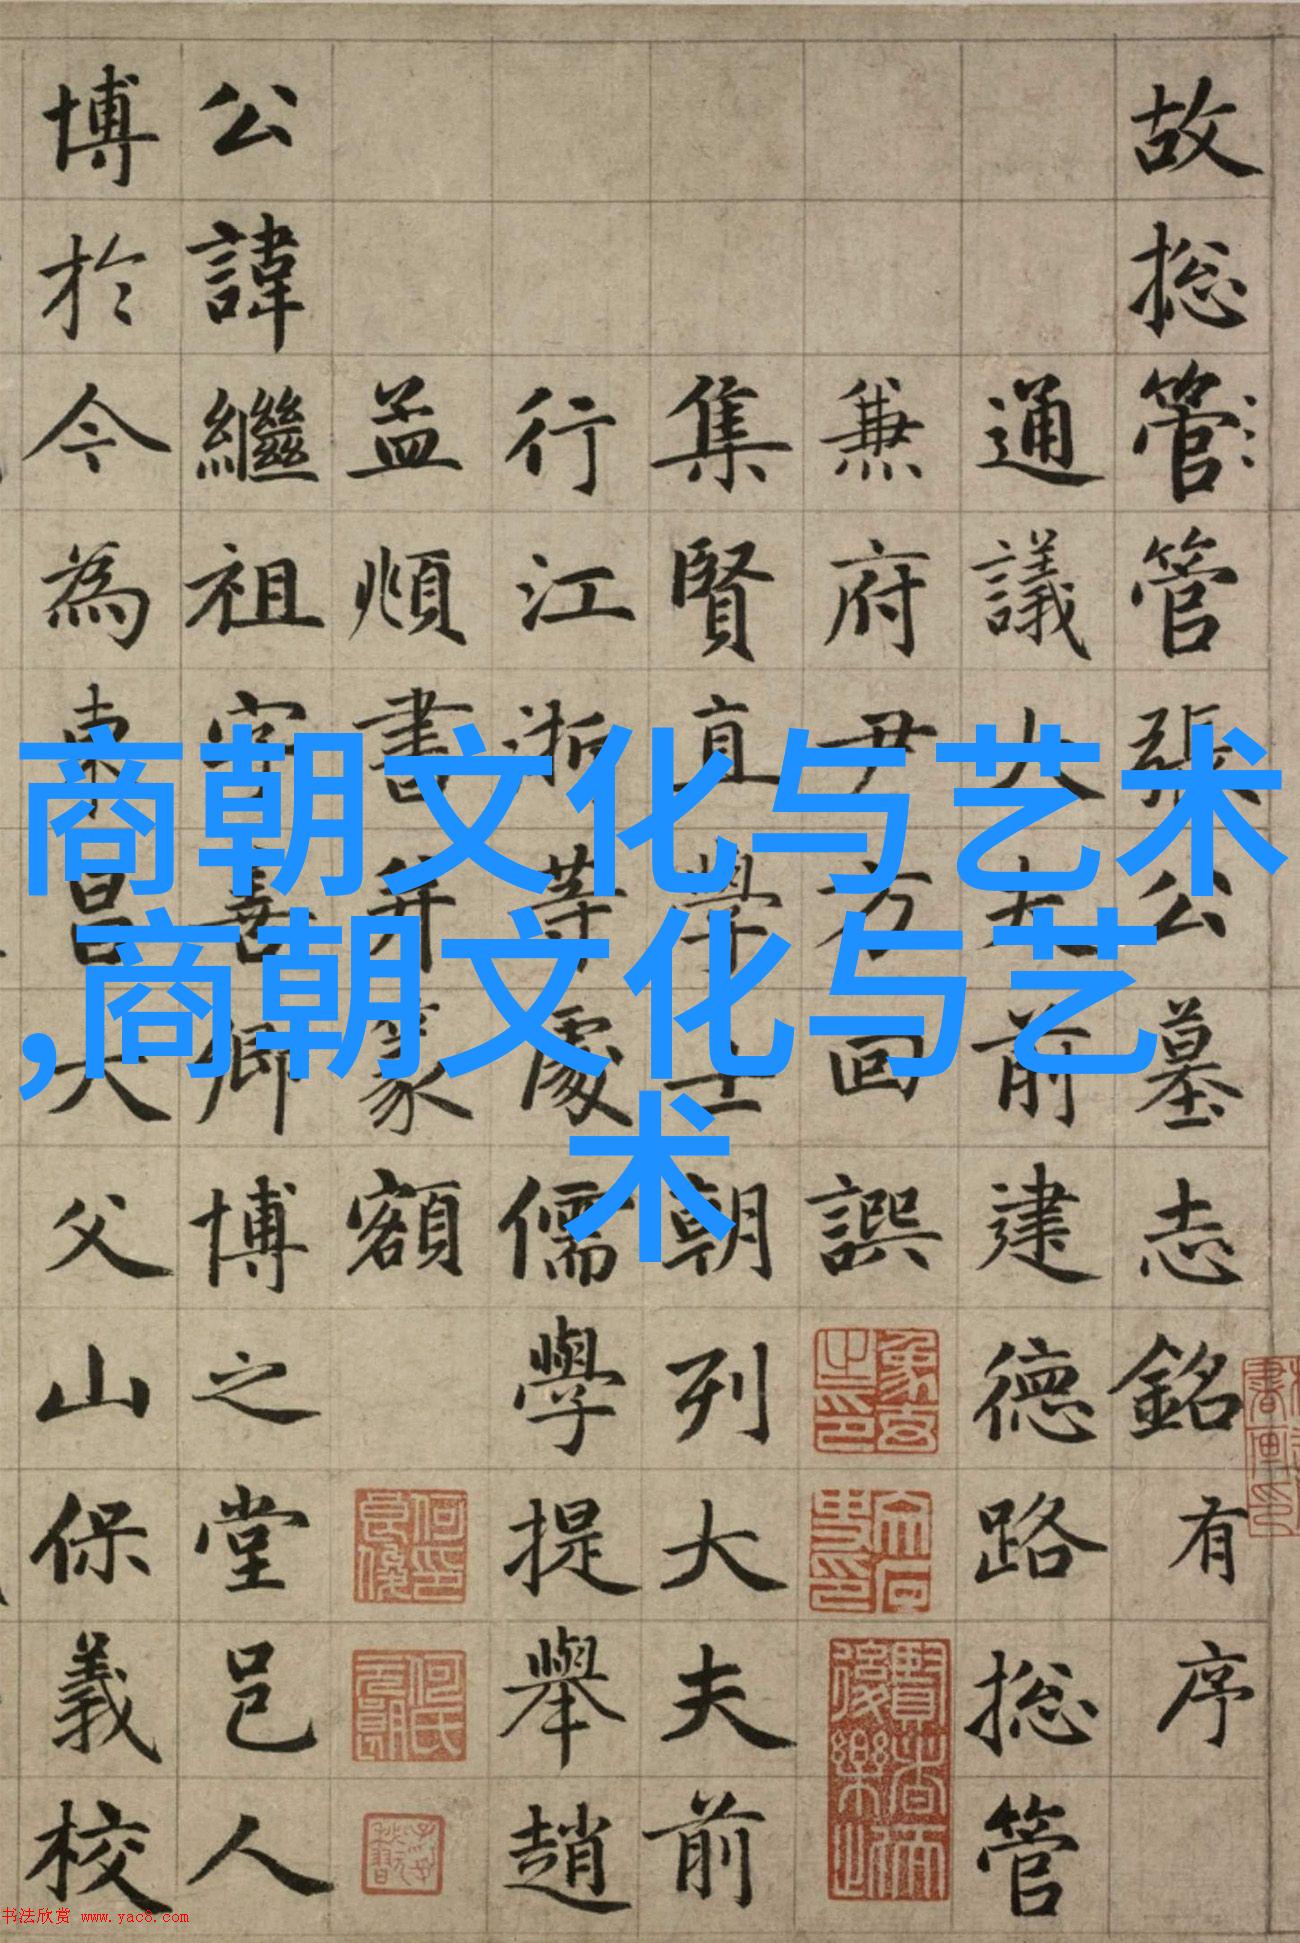 故総管管張公墓志銘有序
通議大夫前建德路総管
兼府尹方回譔
集賢直學士朝列大夫前
行江浙等處儒學提舉趙
孟頫書并篆額
公諱繼祖字善卿博之堂邑人
博於今為東昌大父山保義校
商朝文化与艺术
,商朝文化与艺
术
书法欣赏 www.yac8.com